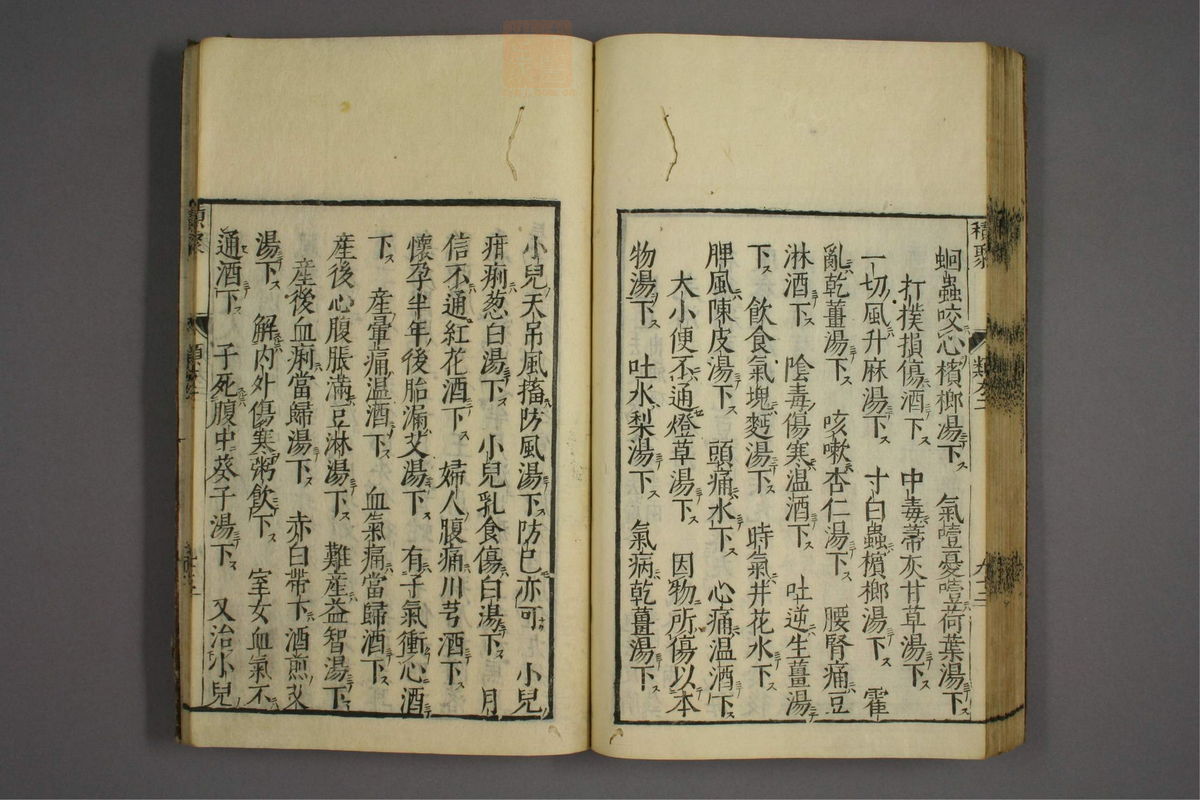 蛔蟲咬心檳榔湯下 氣噎憂噎荷葉湯下
打撲損傷酒下 中毒蒂灰甘草湯下
一切風升麻湯下 寸白蟲檳榔湯下 霍
亂乾薑湯下 咳嗽杏仁湯下 腰腎痛豆
淋酒下 陰毒傷寒温酒下 吐逆生薑湯
下 飲食氣塊麪湯下 時氣井花水下
脾風陳皮湯下 頭痛水下 心痛温酒下
大小便不通燈草湯下 因物所傷以本
物湯下 吐水梨湯下 氣病乾薑湯下
小兒天吊風搐防風湯下防已亦可 小兒
疳痢葱白湯下 小兒乳食傷白湯下 月
信不通紅花酒下 婦人腹痛川芎酒下
懷孕半年後胎漏艾湯下 有子氣衝心酒
下 産暈痛温酒下 血氣痛當歸酒下
産後心腹脹滿豆淋湯下 難産益智湯下
産後血痢當歸湯下 赤白帶下酒煎艾
湯下 解内外傷寒粥飲下 室女血氣不
通酒下 子死腹中葵子湯下 又治小兒